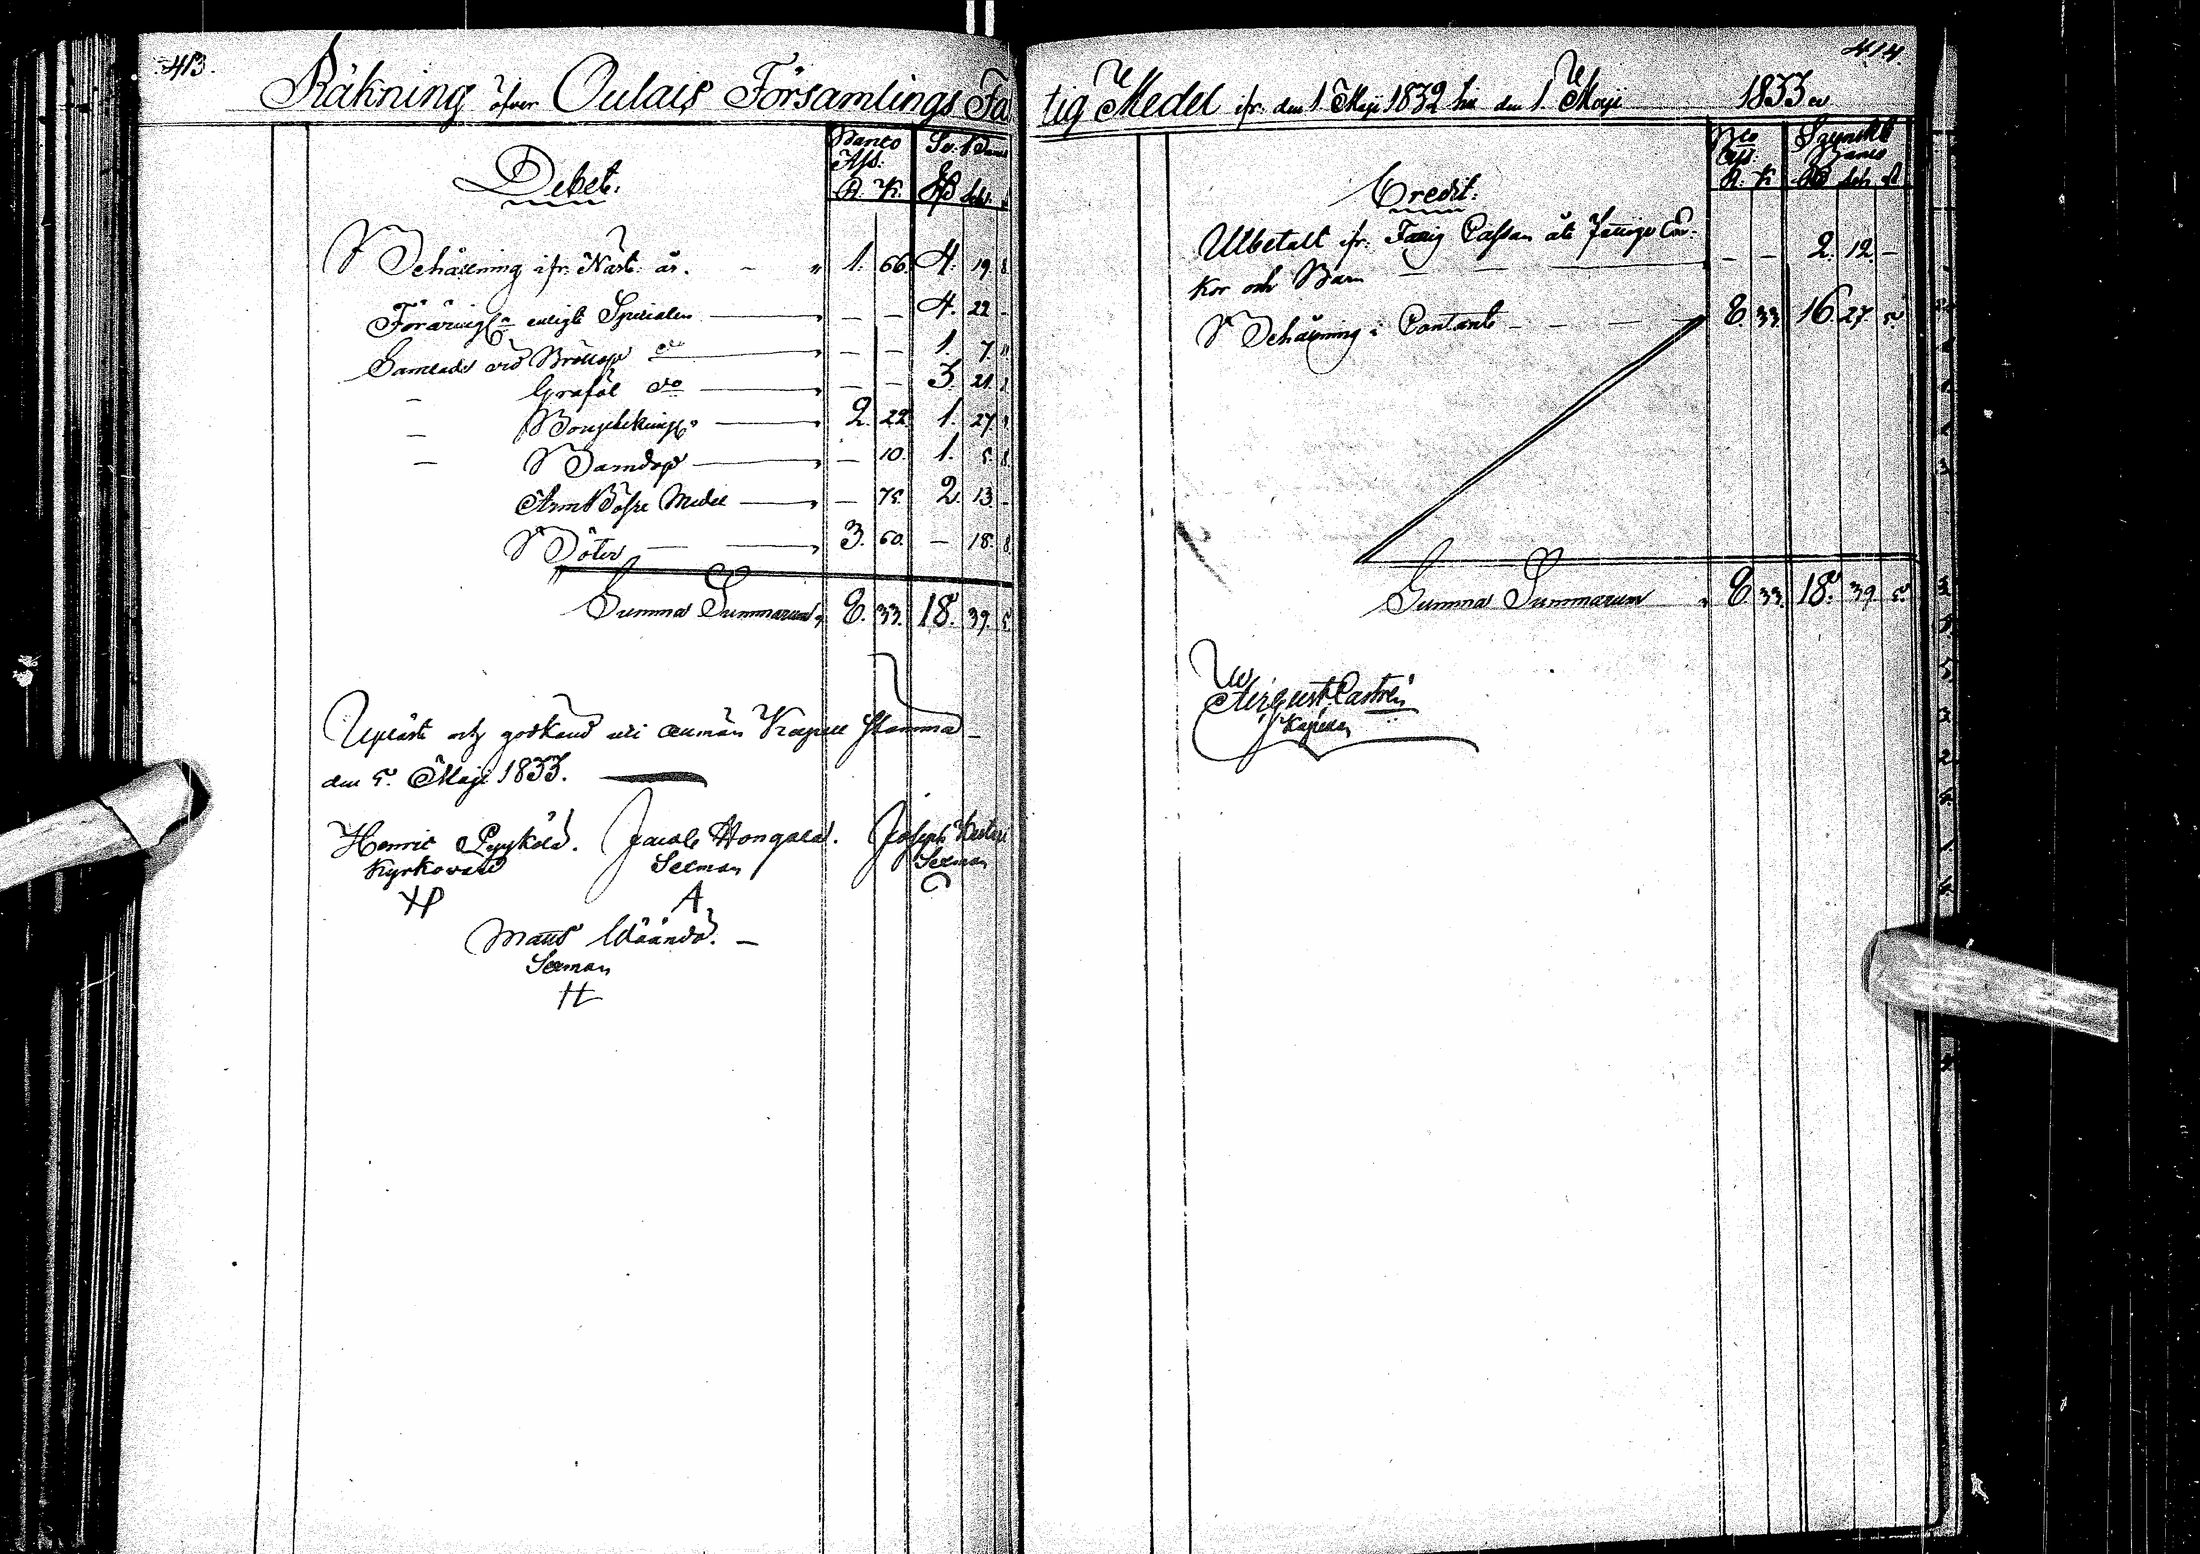 413.
Räkning öfver Oulais Församlings Fa
Debet.
Banco Ass. Sv. Banco
R. K. Rd Sch.
Behållning ifr. Näst. år. - " 1. 66. 4. 19. 8.
Föräringar enligt Specialen - - 4. 22. -
Samlade vid Bröllop do - - 1. 7. "
- Grafäl do - - 3. 21.
- Kyrktekningr 2. 22. 1. 27.
- Barndop - 10. 1. 5. 8.
Arm Bösse Medel - 75. 2. 13. -
Böter 3. 60. - 18. 8.
Summa Summarum 8. 33. 18. 39. 5.
Upläst och godkänd uti allmän Kapell Stämma
den 5. Maji 1833.
Henric Pyykölä. Jacob Hongala. Joseph
Kyrkovärd Sexman Sexman
HP A
Matts Wäändä. -
Sexman
H
414.
tig Medel ifr. den 1. Maji 1832 till den 1. Maji 1833
Credit.
Bco Ass. Svenskt Banco
R. K. Rd Sch. r
Utbetalt ifr. Fattig Cassan åt Fattige En-
kor och Barn - - 2. 12. -
Behållning i Contant 8. 33. 16. 27. 5.
Summa Summarum 8. 33. 18. 39. 5.
August Castrén
Kapellan